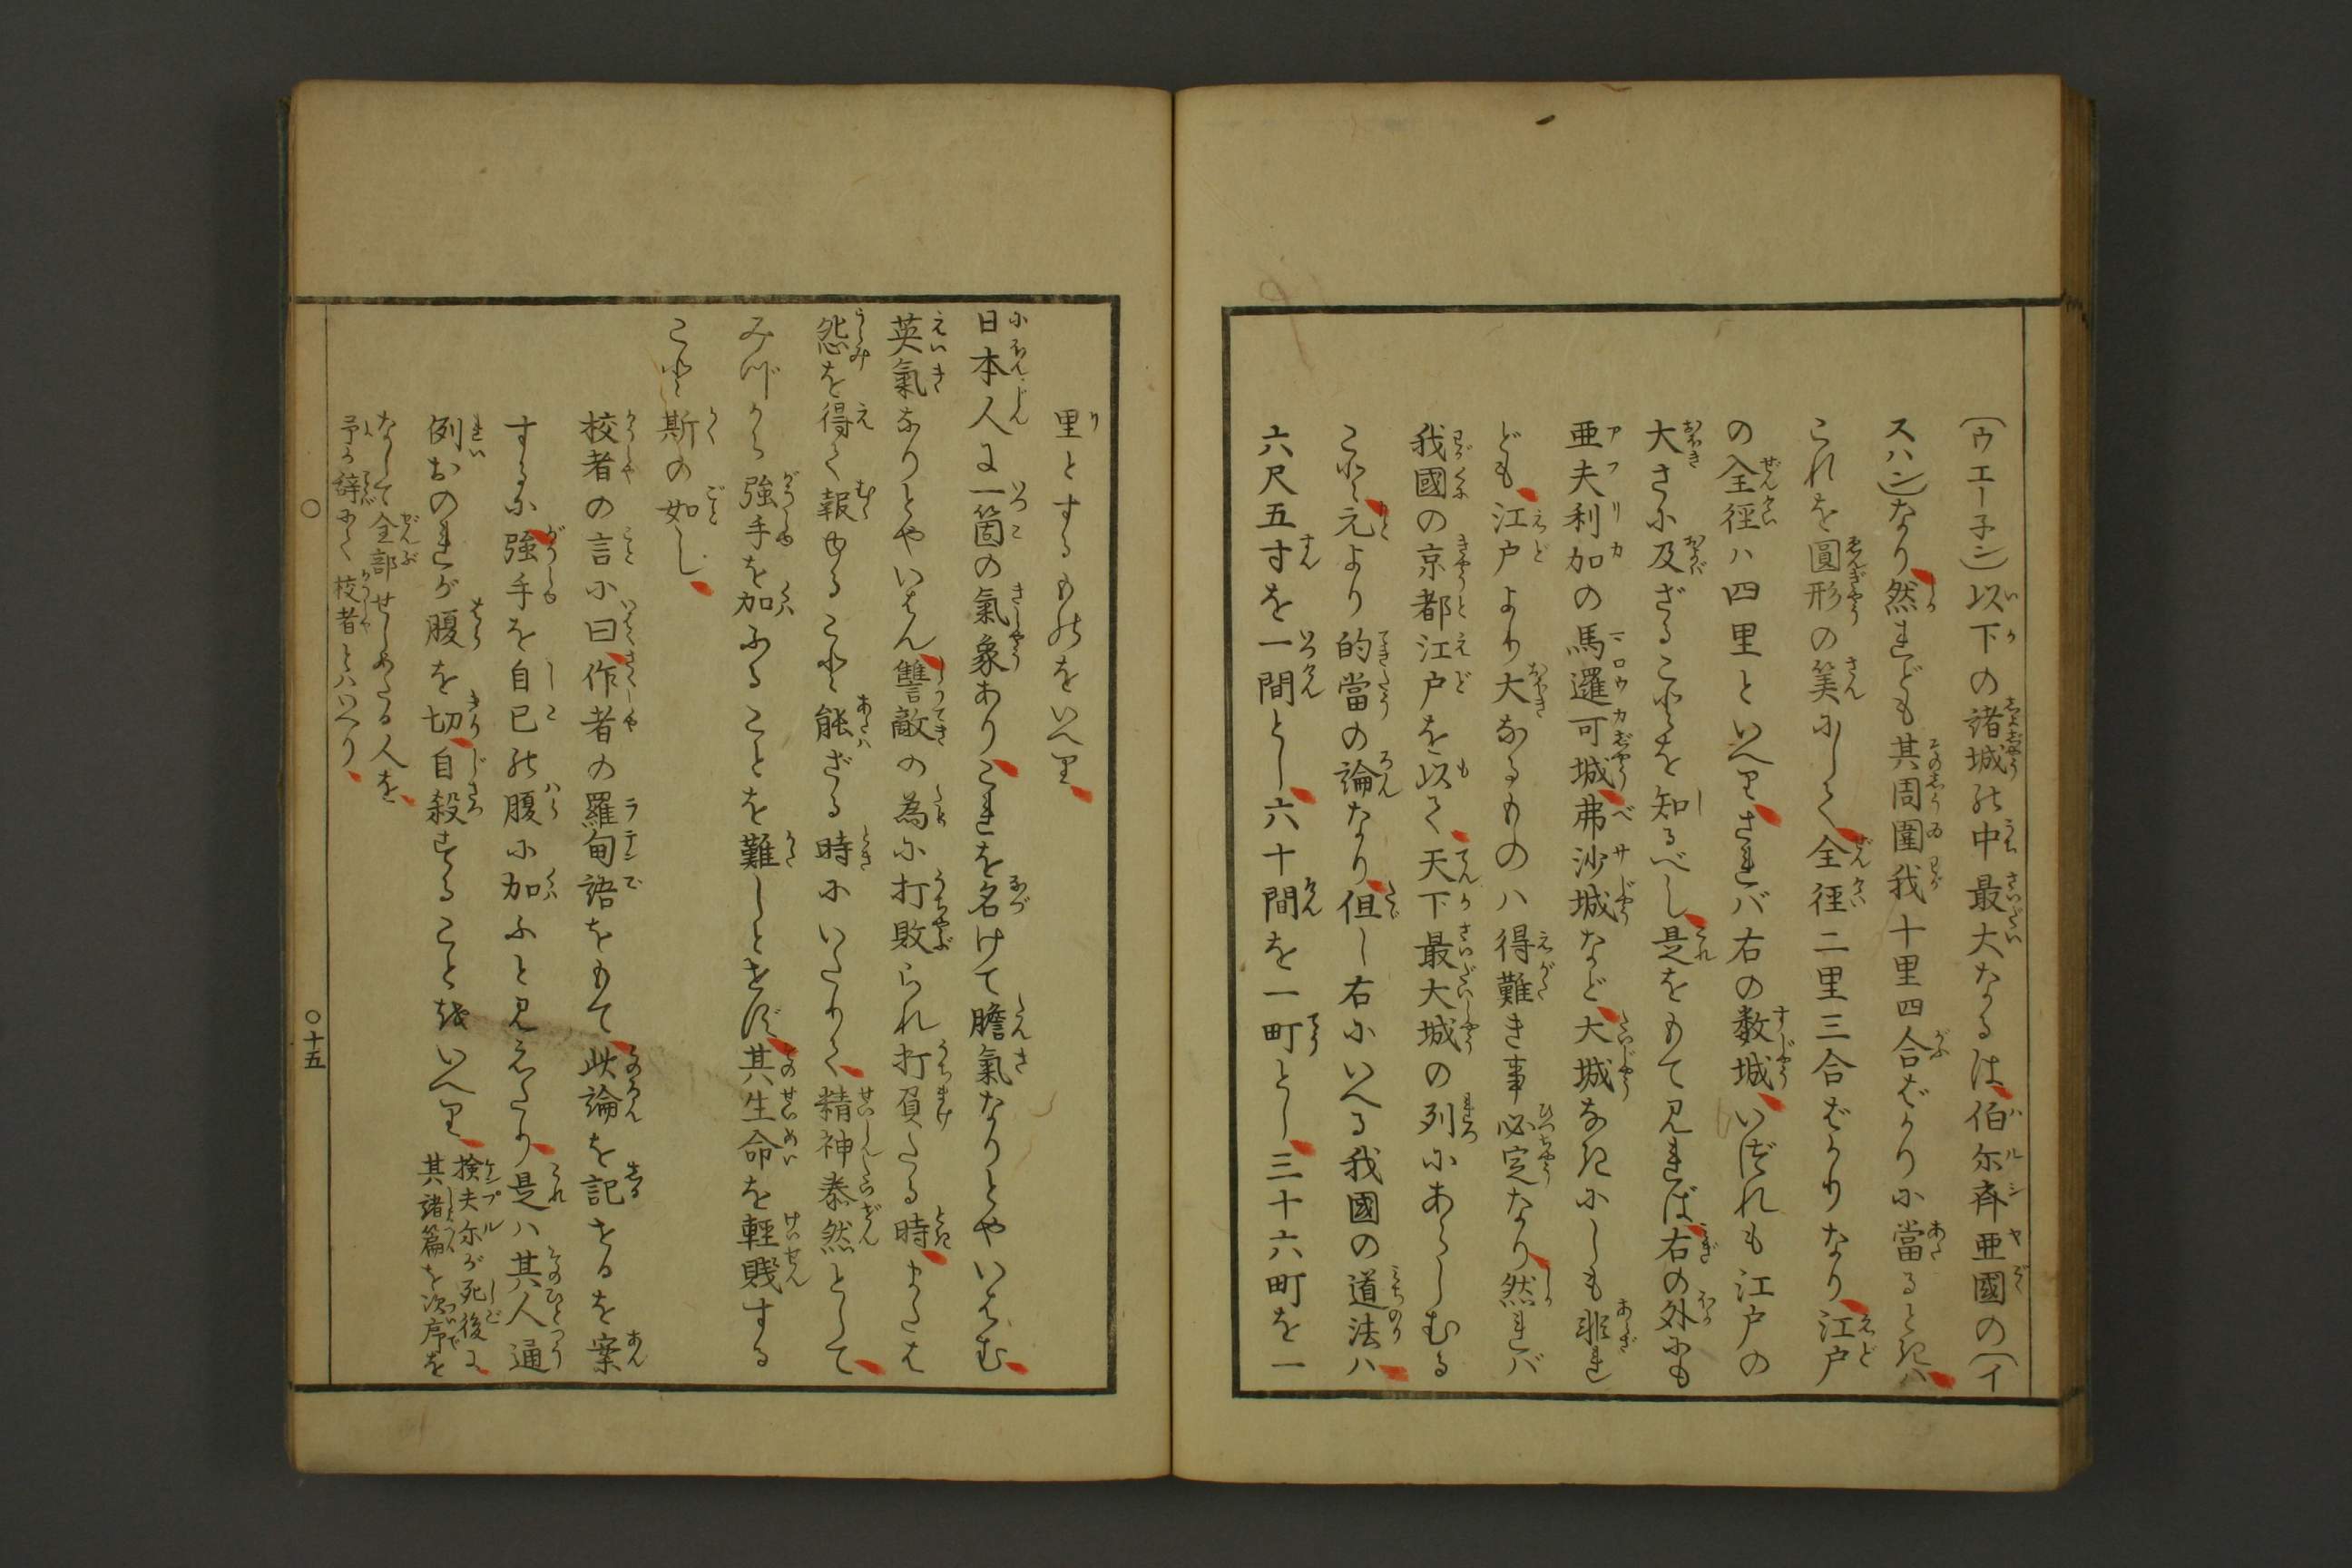 (ウエー子ン)以下の諸城の中最大なるは伯尓斉亜國の(イ
スハン)なり然れども其周圍我十里四合ばかりに當るときハ
これを圓形の筭にして全徑二里三合ばかりなり江戸
の全徑ハ四里といへりされバ右の数城いづれも江戸の
大さに及ざることを知るべし是をもて見れば右の外にも
亜夫利加の馬邏可城弗沙城など大城なきにしも非れ
ども江戸より大なるものハ得難き事必定なり然れバ
我國の京都江戸を以て天下最大城の列にあらしむる
こと元より的當の論なり但し右にいへる我國の道法ハ
六尺五寸を一間とし六十間を一町とし三十六町を一
里とするものをいへり
日本人に一箇の氣象ありこれを名けて膽氣なりとやいはむ
英氣なりとやいはん讐敵の為に打敗られ打負たる時または
怨を得て報ゆること能ざる時にいたりて精神泰然として
みづから強手を加ふることを難しとせず其生命を輕賤する
こと斯の如し
校者の言に曰作者の羅甸語をもて此論を記せるを案
するに強手を自已の腹に加ふと見えたり是ハ其人通
例おのれが腹を切自殺することをいへり
検夫尓が死後に
其諸篇を次序を
なして全部せしめたる人を
予が辞にて校者とハいへり
〇
〇十五